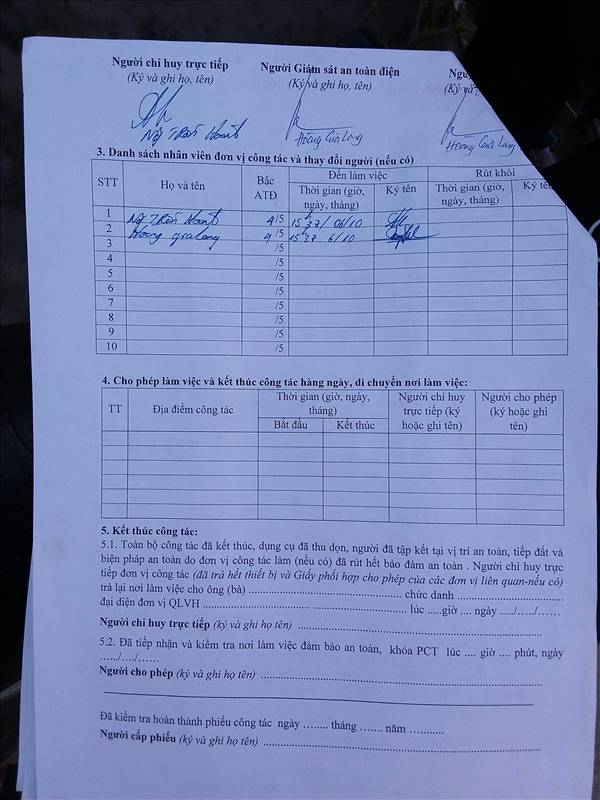 Người chỉ huy trực tiếp Người Giám sát an toàn điện Ngư
(Ký và ghi họ, tên) (Ký và ghi họ, tên) (Ký và
Hoàng Gia Long Hoàng Gia Long
3. Danh sách nhân viên đơn vị công tác và thay đổi người (nếu có)
STT Họ và tên Bậc ATĐ Đến làm việc Rút khỏi
Thời gian (giờ, ngày, tháng) Ký tên Thời gian (giờ, ngày, tháng) Ký tên
1 4/5 15h37/ 06/10
2 Hoàng Gia Long 4/5 15h37 6/10
3 /5
4 /5
5 /5
6 /5
7 /5
8 /5
9 /5
10 /5
4. Cho phép làm việc và kết thúc công tác hàng ngày, di chuyển nơi làm việc:
TT Địa điểm công tác Thời gian (giờ, ngày, tháng) Người chỉ huy trực tiếp (ký hoặc ghi tên) Người cho phép (ký hoặc ghi tên)
Bắt đầu Kết thúc
5. Kết thúc công tác:
5.1. Toàn bộ công tác đã kết thúc, dụng cụ đã thu dọn, người đã tập kết tại vị trí an toàn, tiếp đất và
biện pháp an toàn do đơn vị công tác làm (nếu có) đã rút hết bảo đảm an toàn . Người chỉ huy trực
tiếp đơn vị công tác (đã trả hết thiết bị và Giấy phối hợp cho phép của các đơn vị liên quan-nếu có)
trả lại nơi làm việc cho ông (bà) ........ chức danh ........
đại diện đơn vị QLVH ........ lúc .....giờ .... ngày ...../...../......
Người chỉ huy trực tiếp (ký và ghi họ tên) ........
5.2. Đã tiếp nhận và kiểm tra nơi làm việc đảm bảo an toàn, khóa PCT lúc .... giờ .... phút, ngày
....../..../......
Người cho phép (ký và ghi họ tên) ........
Đã kiểm tra hoàn thành phiếu công tác ngày ........ tháng ....... năm ...........
Người cấp phiếu (ký và ghi họ tên) ........